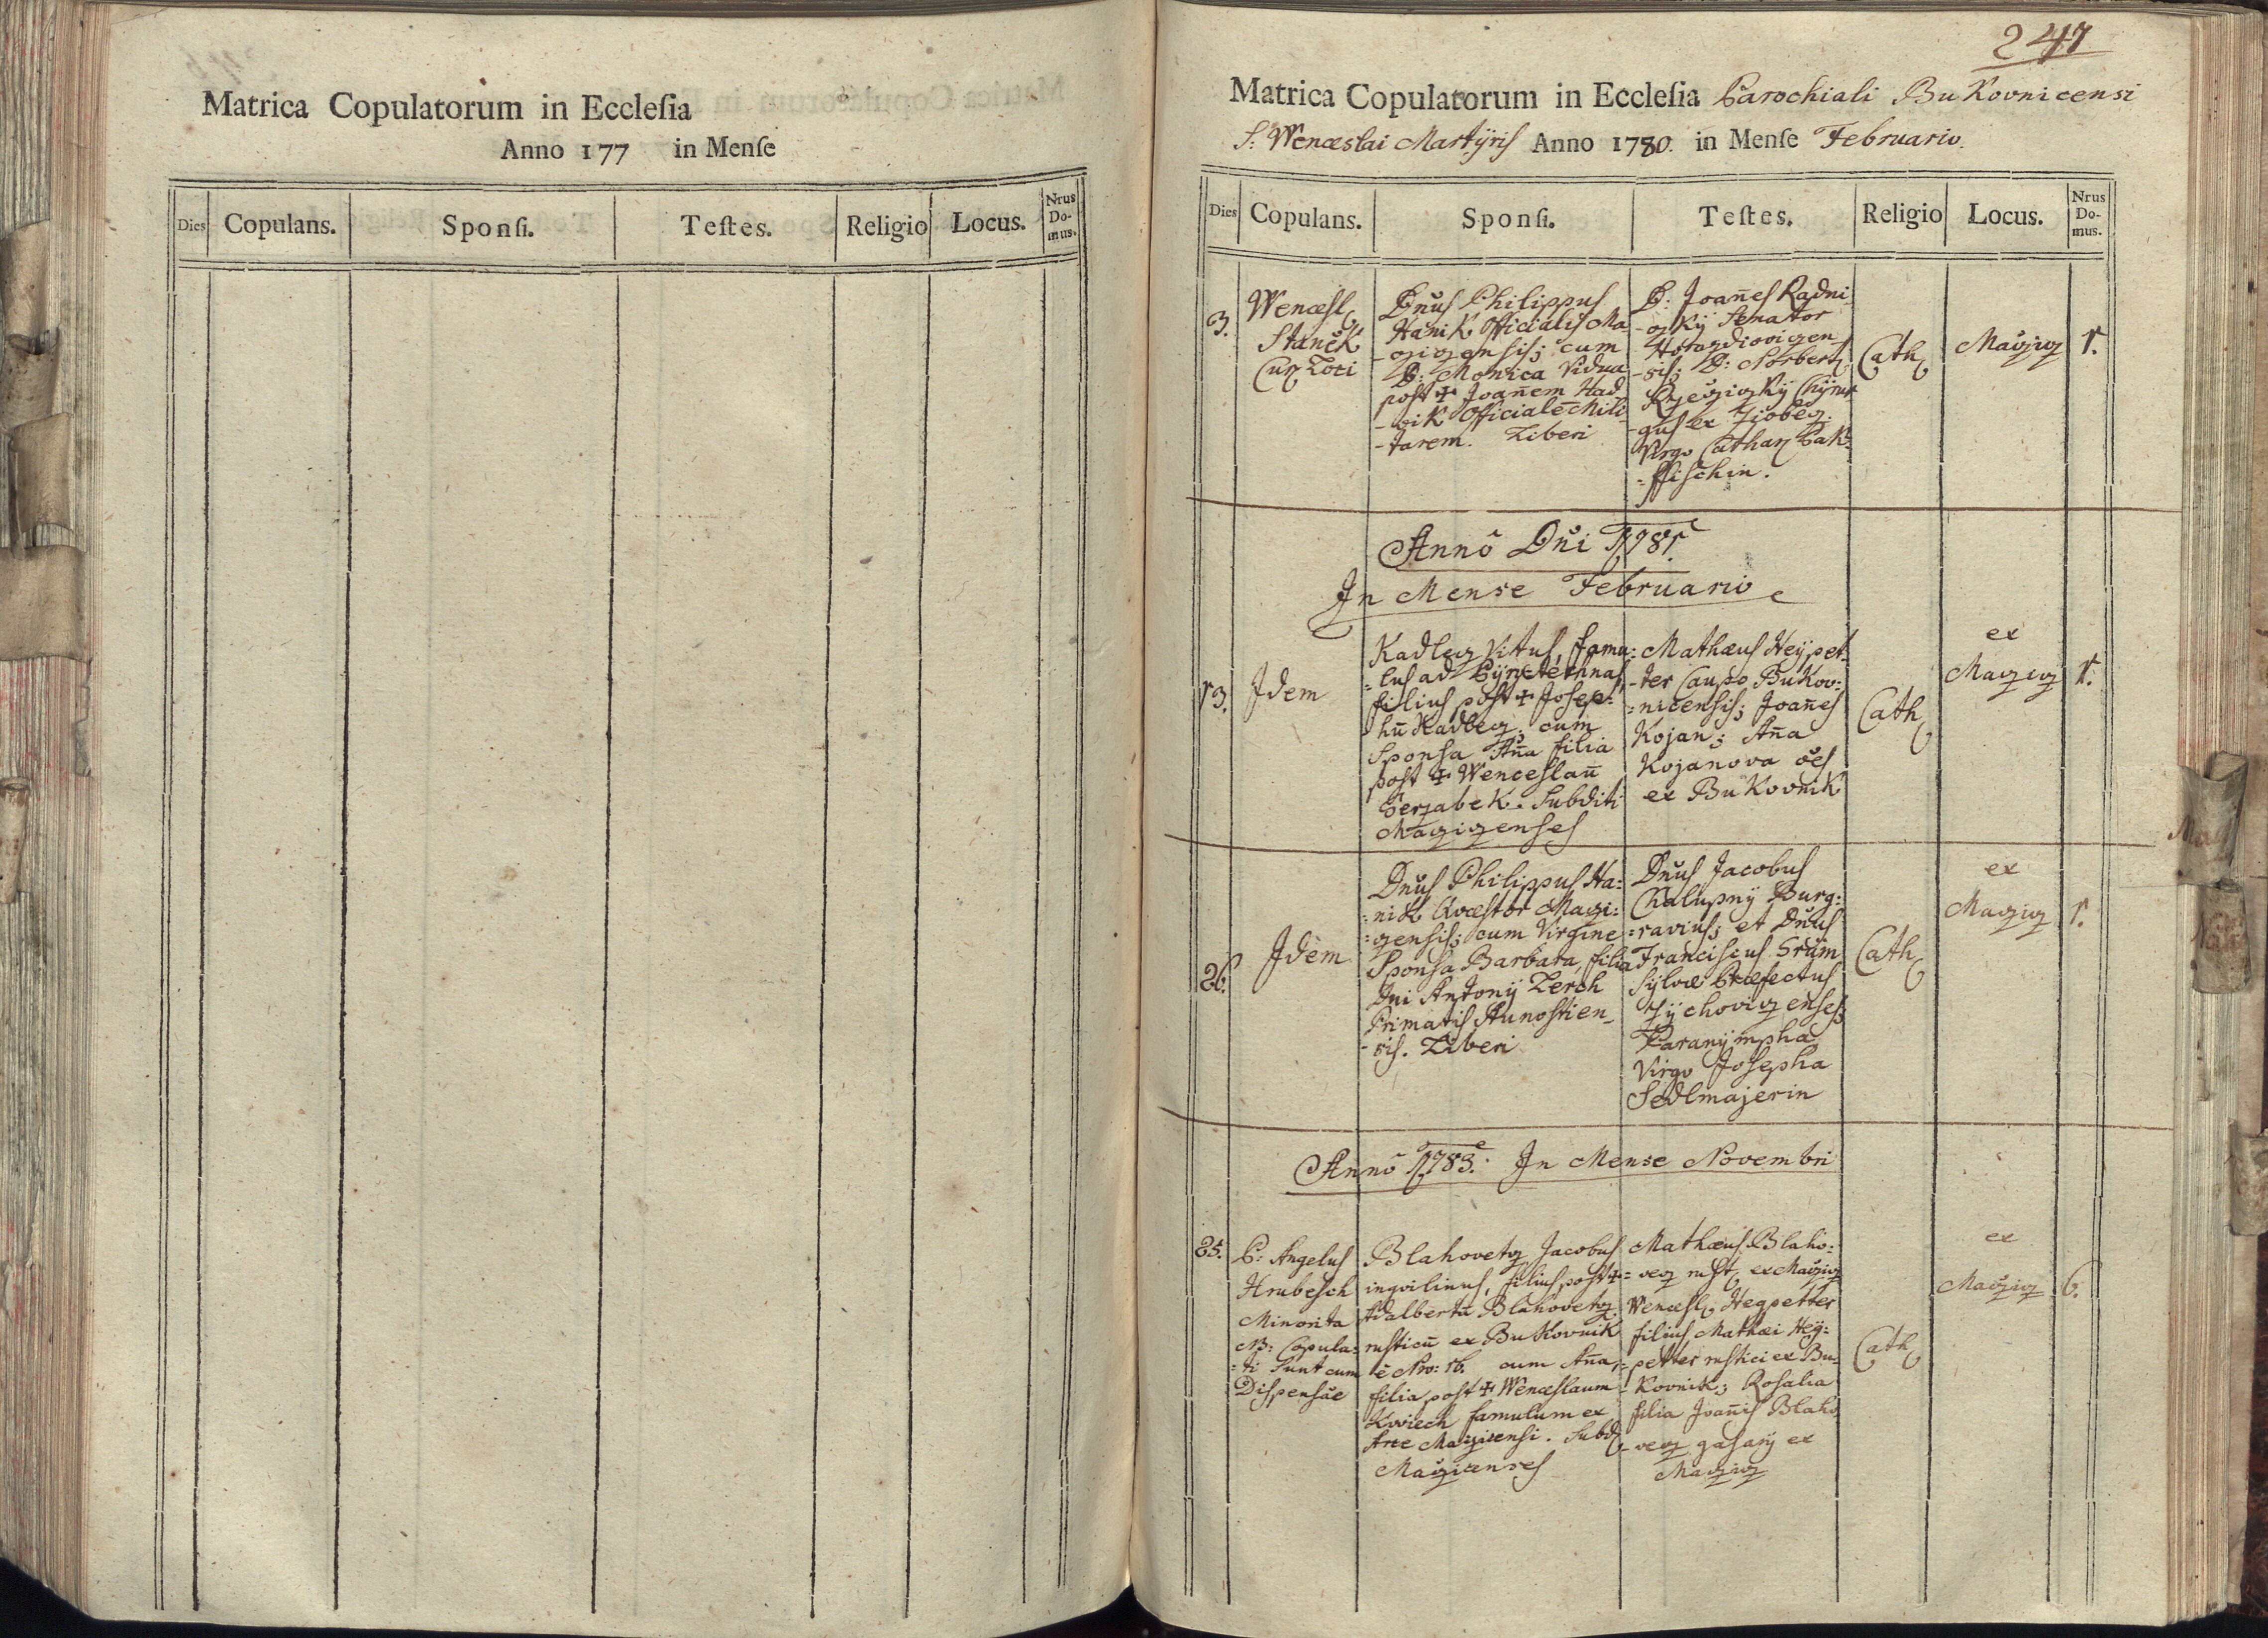 Matrica Copulatorum in Ecclesia
Anno 177 in Mense
Dies Copulans. Sponsi. Testes. Religio Locus. Nrus Do-mus.
247
Matrica Copulatorum in Ecclesia Parochiali Bukovnicensi
S: Wenceslai Martÿris Anno 1780. in Mense Februario.
Dies Copulans. Sponsi. Testes. Religio Locus. Nrus Do-mus.
3.
Wencesl
Staněk
Cur Loci
Dnus Philippus
Hanik Officialis Ma-
-cziczensis; cum
D: Monica Vidua
post + Joañem Had-
-vik Officialem Mili-
-tarem. Liberi
D: Joañes Radni-
-czkÿ Senator
Horazdioviczen-
-sis; D: Norbert
Chÿrur-
-gus ex
Virgo Cathar Pak-
-ffischin.
Cath
Maczicz
1.
Anno Dñi 1781
In Mense Februario
13.
Idem
Kadlecz Vitus, famu-
-lus ad
filius post + Josep-
hũ Kadlecz; cum
Sponsa Aña filia
post + Wenceslaũ
Gerzabek. Subditi
Macziczenses
Mathæus Heÿpet-
-ter Caupo Bukov-
-nicensis; Joañes
Kojan; Aña
Kojanova oes
ex Bukovnik
Cath
ex
Maczicz
1.
26.
Idem
Dnus Philippus Ha-
-nik Quæstor Maczi-
-czensis; cum Virgine
Sponsa Barbara, filia
Dni Antonÿ Lerch
Primatis Stunostien-
-sis. Liberi
Dnus Jacobus
Chalupnÿ Burg-
-ravius; et Dnus
Franciscus Grüm
Sÿlvæ Præfectus
Zÿchoviczenses;
Paranÿmpha
Virgo Josepha
Sedlmajerin
Cath
ex
Maczicz
1.
Anno 1783. In Mense Novembri
25.
P: Angelus
Hrubesch
Minorita
NB: Copula-
-ti sunt cum
Dispensae
Blahovetz Jacobus
inqvilinus, filius post +
Adalbertũ Blahovetz
rusticũ ex Bukovnik
è Nro: 16. cum Aña,
filia post + Wenceslaum
Kwiech famulum ex
Arce Maczicensi. Subd
Maczicenses
Mathæus Blaho-
-vecz rust ex Maczicz
Wencesl Heÿpetter
filius Mathæi Heÿ-
-petter rustici ex Bu-
-kovnik; Rosalia
filia Joañis Blaho-
-vecz gasarÿ ex
Maczicz
Cath
ex
Maczicz
6.